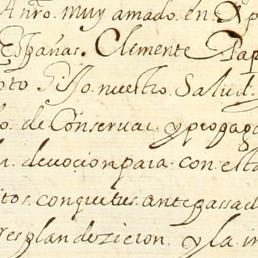 Anr̃o. muy amado. en. Xp
españas. Clemente. Pap
oto Hijo. nuestro. Salud.
o. de Conservar. y propaga
devocion para. con esta
itos. conque tus. antepassad
resplandezieron. y la in